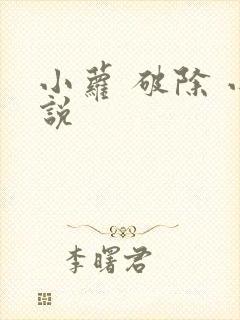 小蘿 破除 小
説
李曙君